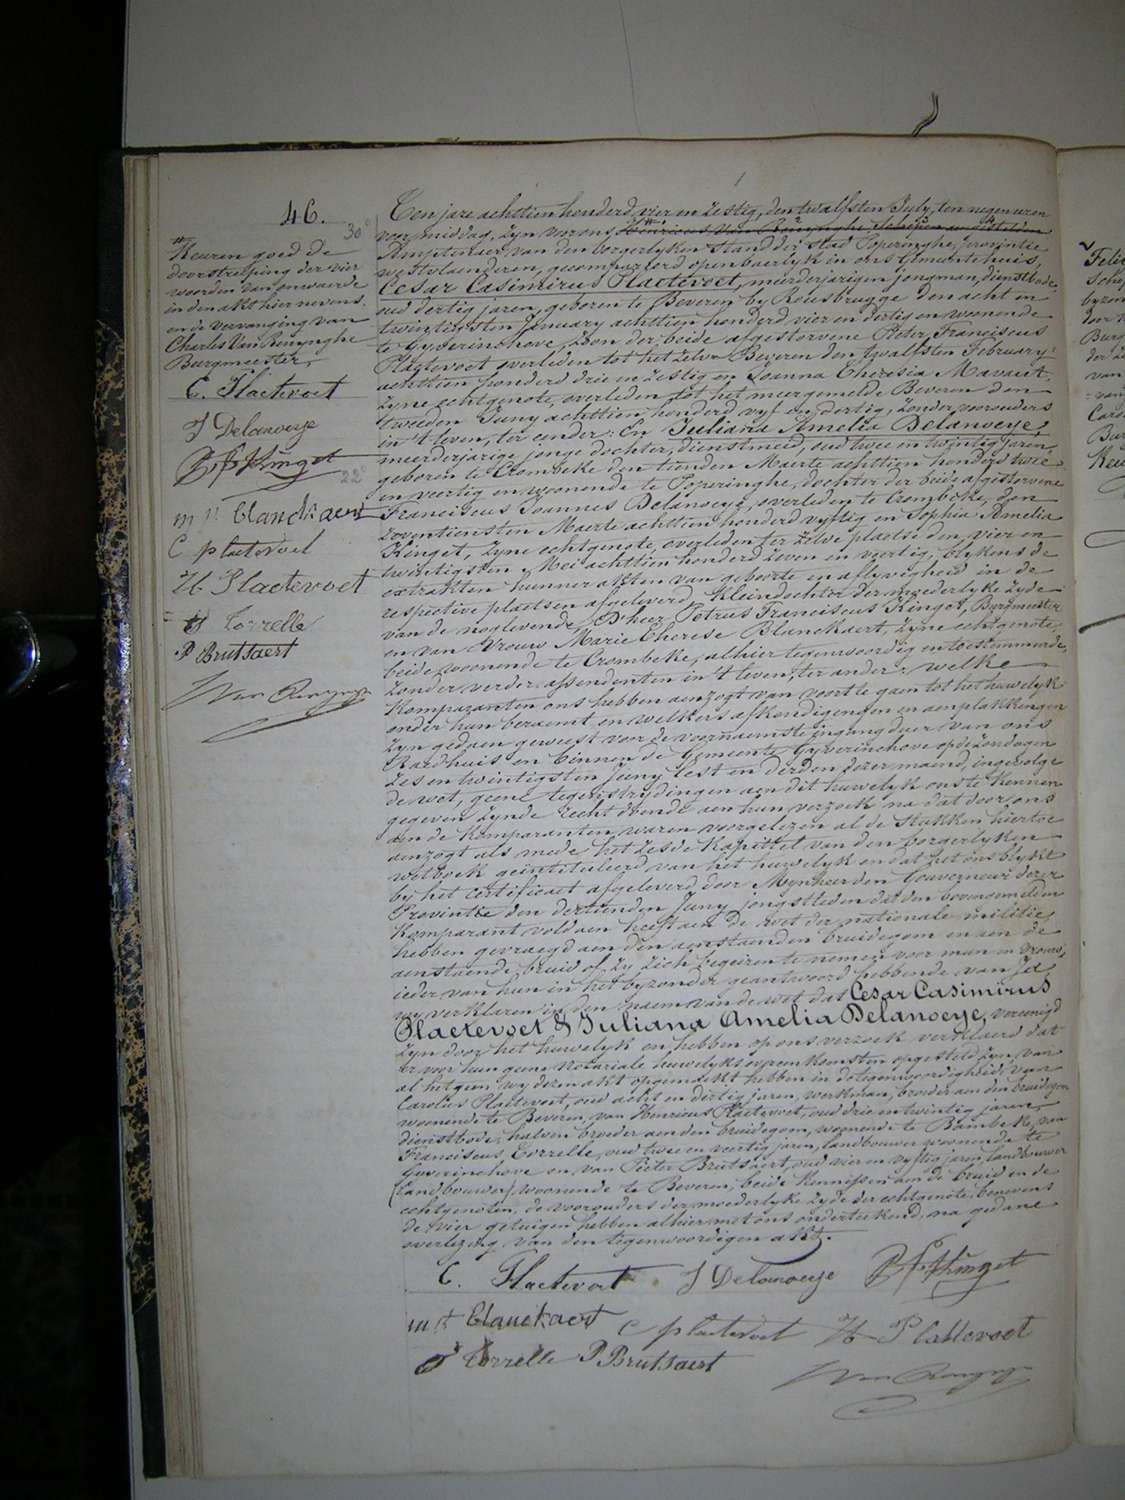 46.
30°
Keuren goed de
doorstreeping der vier
woorden van onwaerde
in den akt hier nevens
en de vervanging van
Charles Van Renynghe
Burgmeester
C. Plaetevoet
J Delanoeye
P F Kinget
22°
m t Blanckaert
C plaetevoet
H Plaetevoet
F Torrelle
P Brutsaert
Van Renynghe
Ten jare achttien honderd vier en zestig, den twalfsten July, ten negen uren
voormiddag, zyn voor ons Henricus Van Renynghe Schepen
Amptenaer van den borgerlyken stand der stad Poperinghe, provintie
westvlaenderen, gecompareerd openbaerlyk in ons Gemeentehuis,
Cesar Casimirus Plaetevoet, meerderjarigen jongman, dienstbode,
oud dertig jaren, geboren te Beveren by Rousbrugge den acht en
twintigsten January achttien honderd vier en dertig en woonende
te Gyverinchove, zoon der beide afgestorvene Pieter Franciscus
Plaetevoet overleden tot het zelve Beveren den twalfsten February
achttien honderd drie en zestig en Joanna Theresia Mavaut
zyne echtgenote, overleden tot het meergemelde Beveren den
tweeden Juny achttien honderd vyf en dertig, zonder voorouders
in 't leven, ter eender: En Juliana Amelia Delanoeye,
meerderjarige jonge dochter, dienstmeid, oud twee en twintig jaren,
geboren te Crombeke den tienden Maerte achttien honderd twee
en veertig en woonende te Poperinghe, dochter der beide afgestorvene
Franciscus Joannes Delanoeye, overleden te Crombeke, den
zeventiensten Maerte achttien honderd vyftig en Sophia Amelia
Kinget, zyne echtgenote, overleden ter zelve plaetse den vier en
twintigsten Mei achttien honderd zeven en veertig, blykens de
extrakten hunner akten van geboorte en aflyvigheid in de
respective plaetsen afgeleverd, kleindochter der moederlyke zyde
van de noglevende d'heer Petrus Franciscus Kinget, Burgmeester
en van Vrouw Marie Therese Blanckaert, zyne echtgenote,
beide woonende te Crombeke, alhier tegenwoordig en toestemmende,
zonder verder assendenten in 't leven, ter ander: welke
komparanten ons hebben aenzogt van voort te gaen tot het huwelyk
onder hun beraemt en welkers afkondigingen en aenplakkingen
zyn gedaen geweest voor de voornaemste ingangdeur van ons
Raedhuis en binnen de Gemeente Gyverinchove op de zondagen
zes en twintigsten Juny lest en derden dezer maend, ingevolge
de wet, geene tegenstrydingen aen dit huwelyk ons te kennen
gegeven zynde recht doende aen hun verzoek na dat door ons
aen de komparanten waren voorgelezen al de stukken hiertoe
aenzogt als mede het zesde kapittel van den borgerlyken
wetboek geintituleerd van het huwelyk en dat het ons blykt
by het certificaet afgeleverd door Mynheer den Gouverneur dezer
Provintie den dertienden Juny jongstleden dat den bovengemelden
komparant voldaen heeft aen de wet der nationale militie,
hebben gevraegd aen den aenstaenden bruidegom en aen de
aenstaende bruid of zy zich begeiren te nemen voor man en vrouw,
ieder van hun in het byzonder geantwoord hebbende van Ja,
wy verklaren in den naem van de wet dat Cesar Casimirus
Plaetevoet & Juliana Amelia Delanoeye, vereenigd
zyn door het huwelyk en hebben op ons verzoek verklaerd dat
er voor hun geene Notariale huwelyksovereenkomsten opgesteld zyn, van
al hetgeen wy dezen akt opgemaekt hebben in de tegenwoordigheid van
Carolus Plaetevoet, oud acht en dertig jaren, werkman, broeder aen den bruidegom
woonende te Beveren, van Henricus Plaetevoet, oud drie en twintig jaren,
dienstbode, halven broeder aen den bruidegom, woonende te Bambeke, van
Franciscus Torrelle, oud twee en veertig jaren, landbouwer woonende te
Gyverinchove en van Pieter Brutsaert, oud vier en vyftig jaren, landbouwer
(landbouwer) woonende te Beveren, beide kennissen aen de bruid en de
echtgenoten, de voorouders der moederlyke zyde der echtgenote, benevens
de vier getuigen hebben alhier met ons onderteekend, na gedane
overlezing van den tegenwoordigen akt.
C. Plaetevoet J Delanoeye P F Kinget
m t Blanckaert C plaetevoet H Plaetevoet
F Torrelle P Brutsaert
Van Renynghe